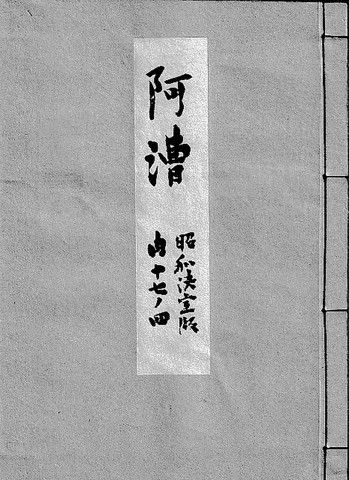 阿漕
昭和決定版
内十七ノ四